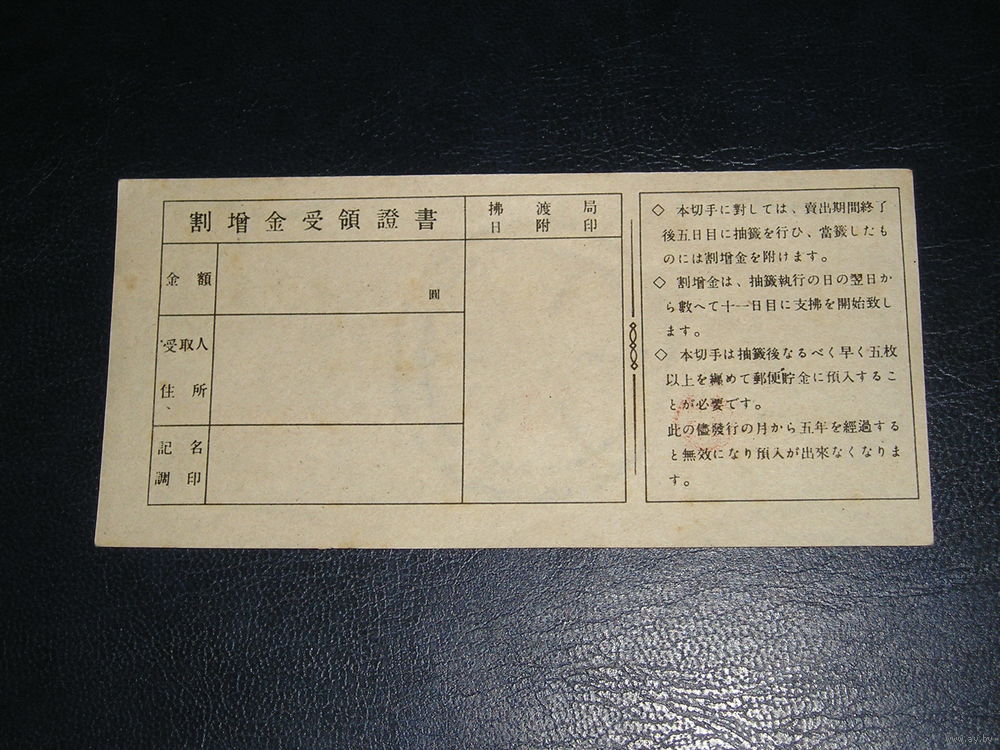 割增金受領證書
拂渡局
日附印
金額
圓
受取人
住所
記名
調印
◇ 本切手に對しては、賣出期間終了
後五日目に抽籤を行ひ、當籤したも
のには割增金を附けます。
◇ 割增金は、抽籤執行の日の翌日か
ら數へて十一日目に支拂を開始致し
ます。
◇ 本切手は抽籤後なるべく早く五枚
以上を纏めて郵便貯金に預入するこ
とが必要です。
此の儘發行の月から五年を經過する
と無效になり預入が出來なくなりま
す。
www.ay.by